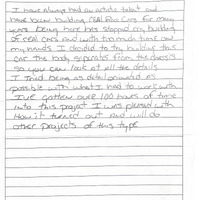 I have always had an artistic talent and
have been building real Race Cars for many
years being here has stopped my building
of real cars and with too much time on
my hands I decided to try building this
car. the body separates from the chassis
so you can look at all the details
I Tried being as detail oriented as
possible with what I had to work with
I've gotten over 100 hours of time
into this project I was pleased with
How it turned out and will do
other projects of this type